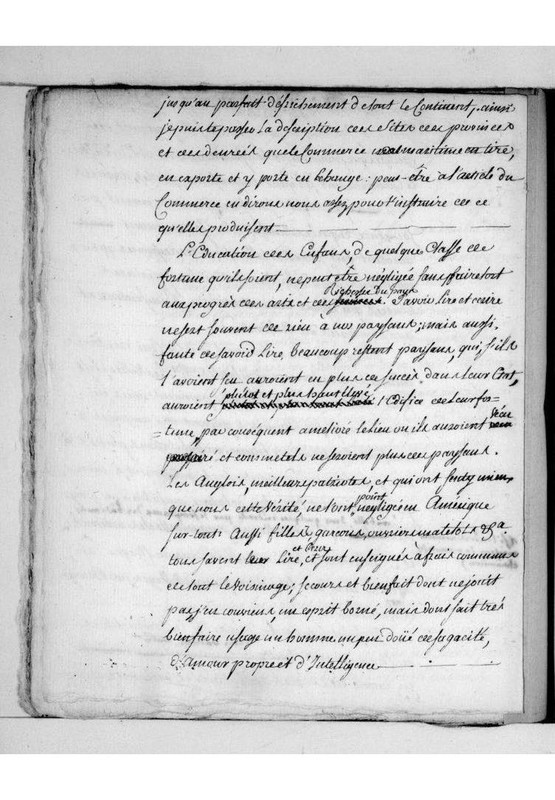 jusqu'au parfait défrichement de tout le Continent; ainsi
je puis te passer la description des Sites des provinces
et des denrées que le Commerce maritime en tire,
en exporte et y porte en Echange: peut-être a l'article du
Commerce en dirons nous assez pour t'instruire de ce
qu'elles produisent
L'Education des Enfans, de quelque Classe de
fortune qu'ils soient, ne peut être négligée sans faire tort
Richesses du pays
aux progrès des arts et des sciences. Savoir Lire et ecrire
ne sert souvent de rien à nos paysans; mais aussi
faute de savoir Lire, beaucoup restent paysans, qui, s'ils
l'avoient seu auroient eu plus de succès dans leur Etat,
plutot et plus haut
auroient l'Edifice de leur for-
=tune, par conséquent amelioré le lieu ou ils auroient
et comme tels ne seroient plus des paysans.
Les Anglois, meilleurs patriotes, et qui ont senty mieux
point
que nous cette vérité, ne l'ont negligée en Amérique
sur-tout: Aussi filles, garçons, ouvriers matelots &a.
et Ecrire
tous savent Lire, et sont enseignés à frais communs
de tout le voisinage; secours et bienfait dont ne jouit
pas, j'en conviens, un esprit borné, mais dont sait très
bien faire usage un homme un peu doüé de sagacité,
d'Amour propre et d'Intelligence